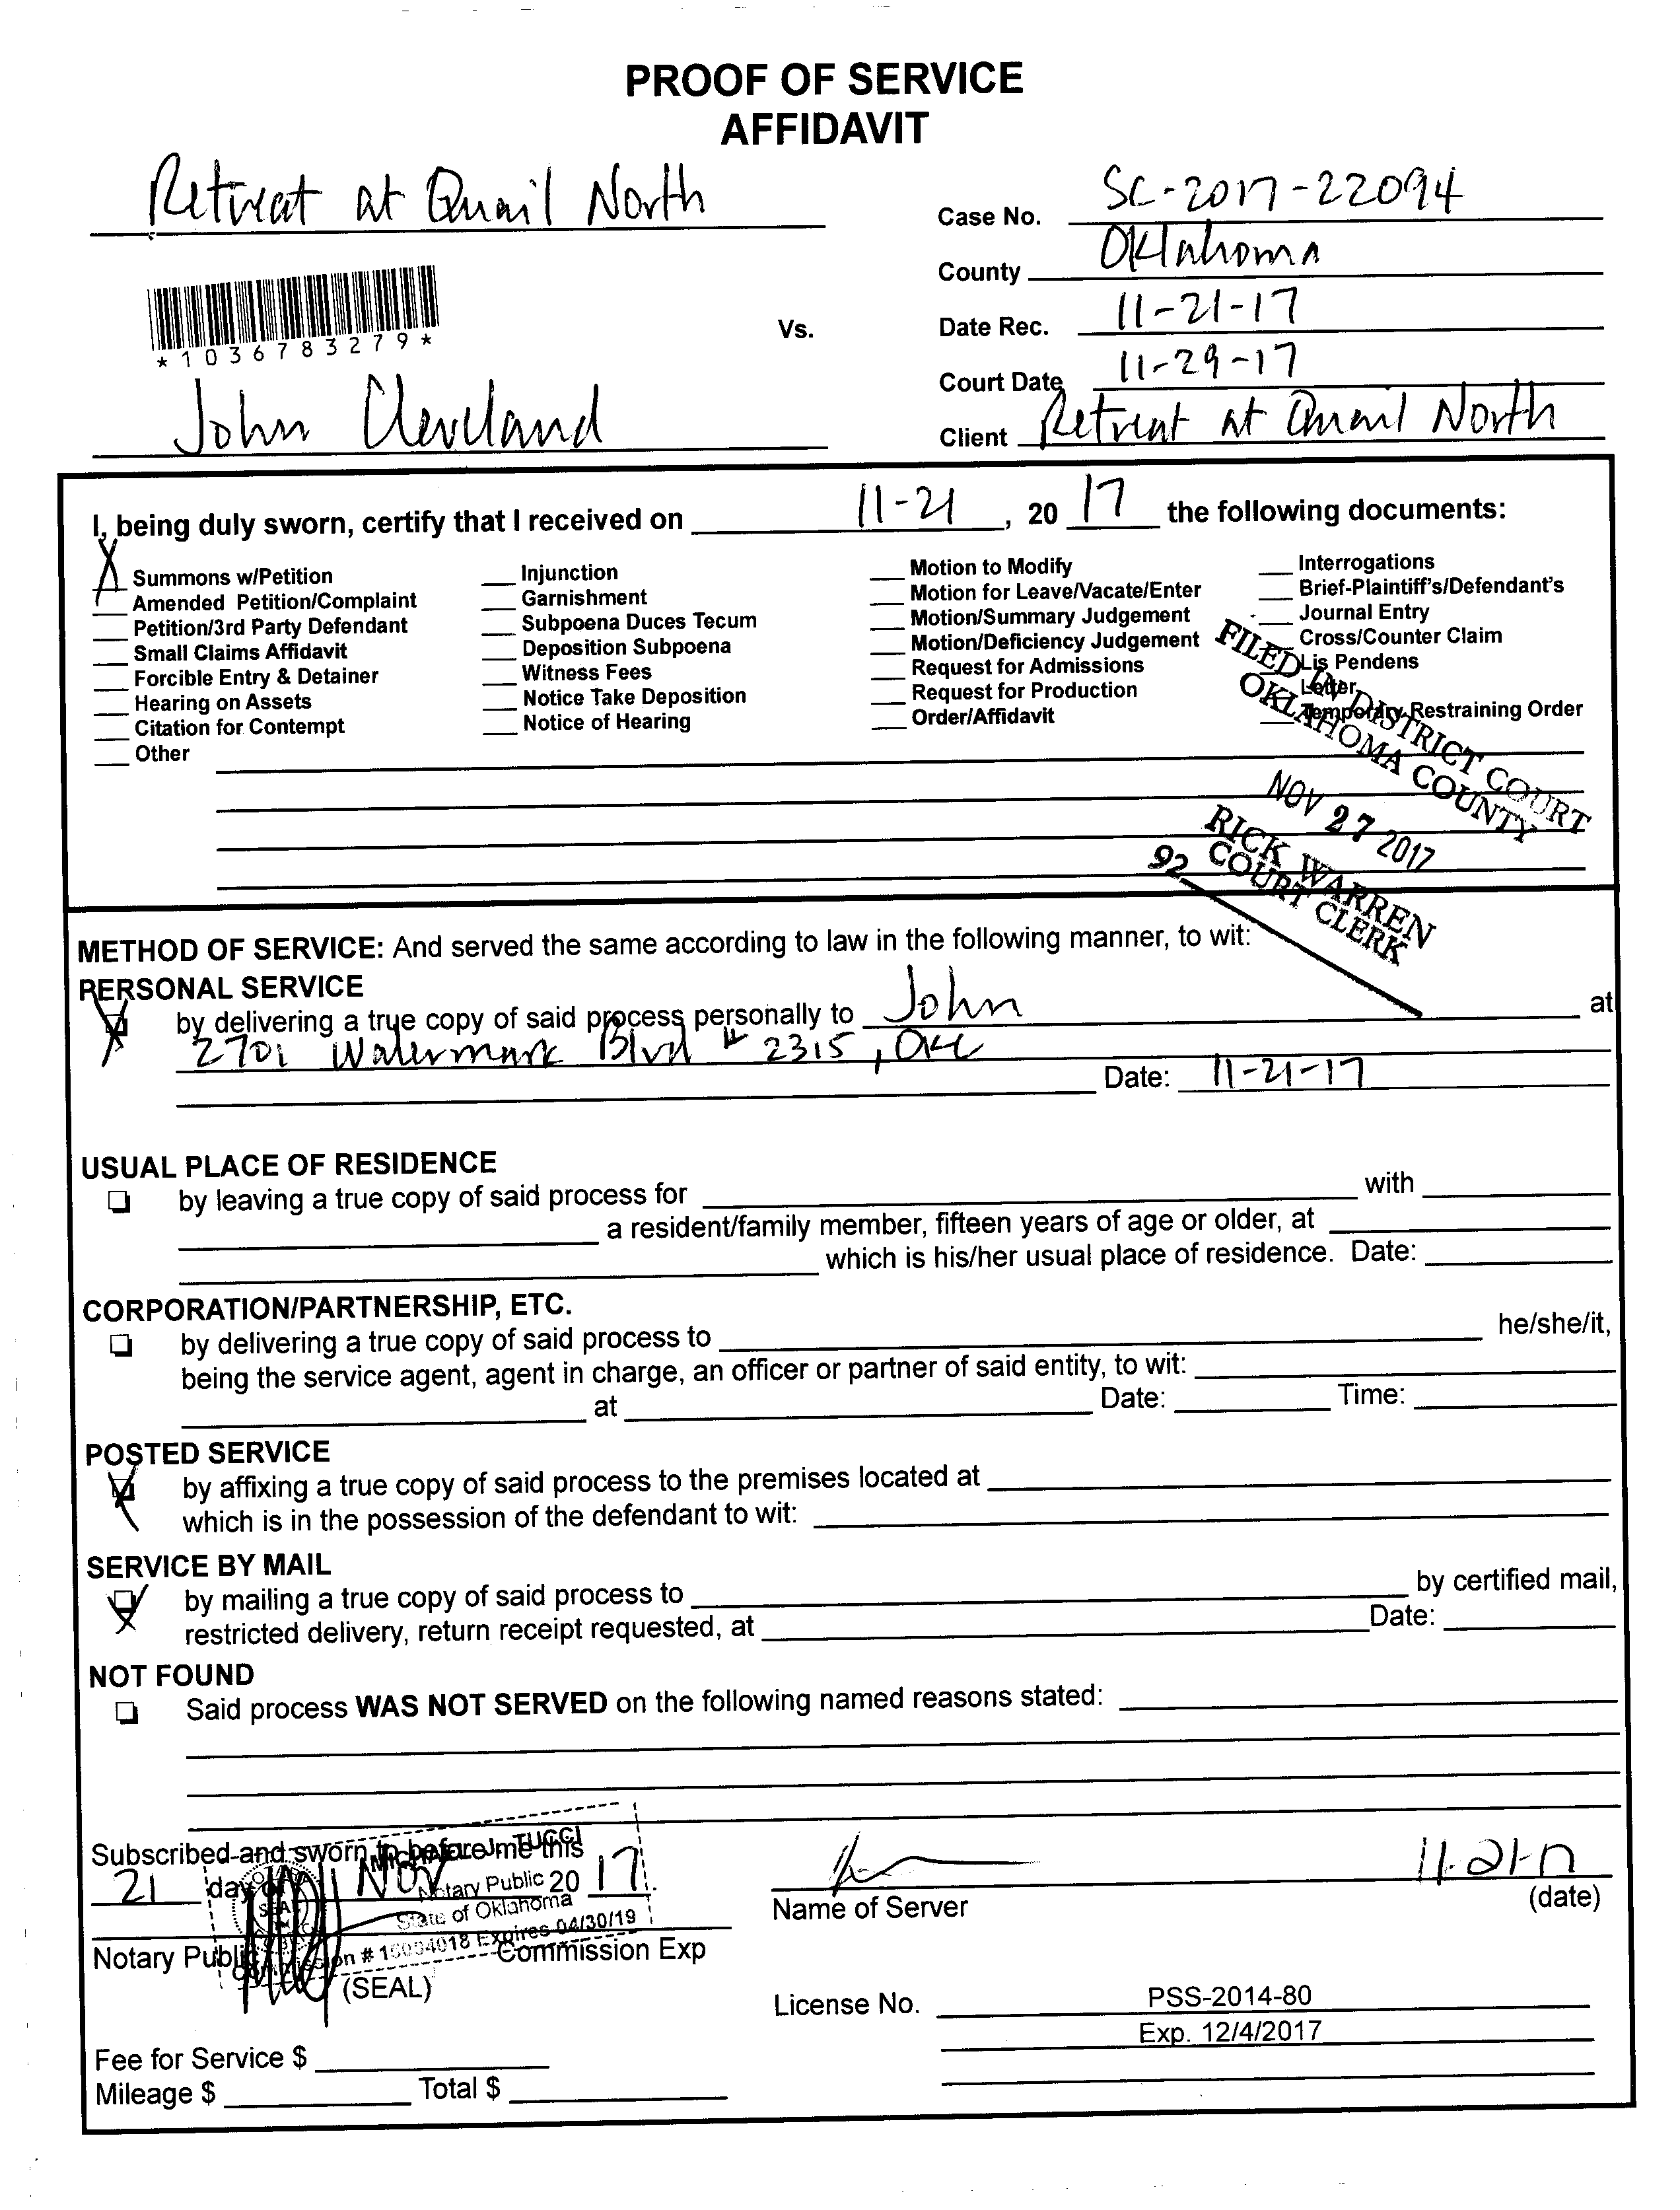 PROOF OF SERVICE
AFFIDAVIT
Retreat at Quail North
Case No. SC-2017-22094
County Oklahoma
*1036783279*
Vs.
Date Rec. 11-21-17
Court Date 11-29-17
John Cleveland
Client Retreat at Quail North
I, being duly sworn, certify that I received on 11-21, 20 17 the following documents:
X Summons w/Petition
Amended Petition/Complaint
Petition/3rd Party Defendant
Small Claims Affidavit
Forcible Entry & Detainer
Hearing on Assets
Citation for Contempt
Other
Injunction
Garnishment
Subpoena Duces Tecum
Deposition Subpoena
Witness Fees
Notice Take Deposition
Notice of Hearing
Motion to Modify
Motion for Leave/Vacate/Enter
Motion/Summary Judgement
Motion/Deficiency Judgement
Request for Admissions
Request for Production
Order/Affidavit
Interrogations
Brief-Plaintiff's/Defendant's
Journal Entry
Cross/Counter Claim
Lis Pendens
Letter
Temporary Restraining Order
FILED IN DISTRICT COURT
OKLAHOMA COUNTY
NOV 27 2017
RICK WARREN
COURT CLERK
92
METHOD OF SERVICE: And served the same according to law in the following manner, to wit:
PERSONAL SERVICE
X by delivering a true copy of said process personally to John at
2701 Watermark Blvd # 2315, OKC
Date: 11-21-17
USUAL PLACE OF RESIDENCE
by leaving a true copy of said process for with
a resident/family member, fifteen years of age or older, at
which is his/her usual place of residence. Date:
CORPORATION/PARTNERSHIP, ETC.
by delivering a true copy of said process to he/she/it,
being the service agent, agent in charge, an officer or partner of said entity, to wit:
at Date: Time:
POSTED SERVICE
X by affixing a true copy of said process to the premises located at
which is in the possession of the defendant to wit:
SERVICE BY MAIL
X by mailing a true copy of said process to by certified mail,
restricted delivery, return receipt requested, at Date:
NOT FOUND
Said process WAS NOT SERVED on the following named reasons stated:
Subscribed and sworn to before me this
21 day of Nov 20 17.
J. TUCCI
Notary Public
State of Oklahoma
Expires 04/30/19
11-21-17
Name of Server (date)
Notary Public Commission Exp
(SEAL)
License No. PSS-2014-80
Exp. 12/4/2017
Fee for Service $
Mileage $ Total $